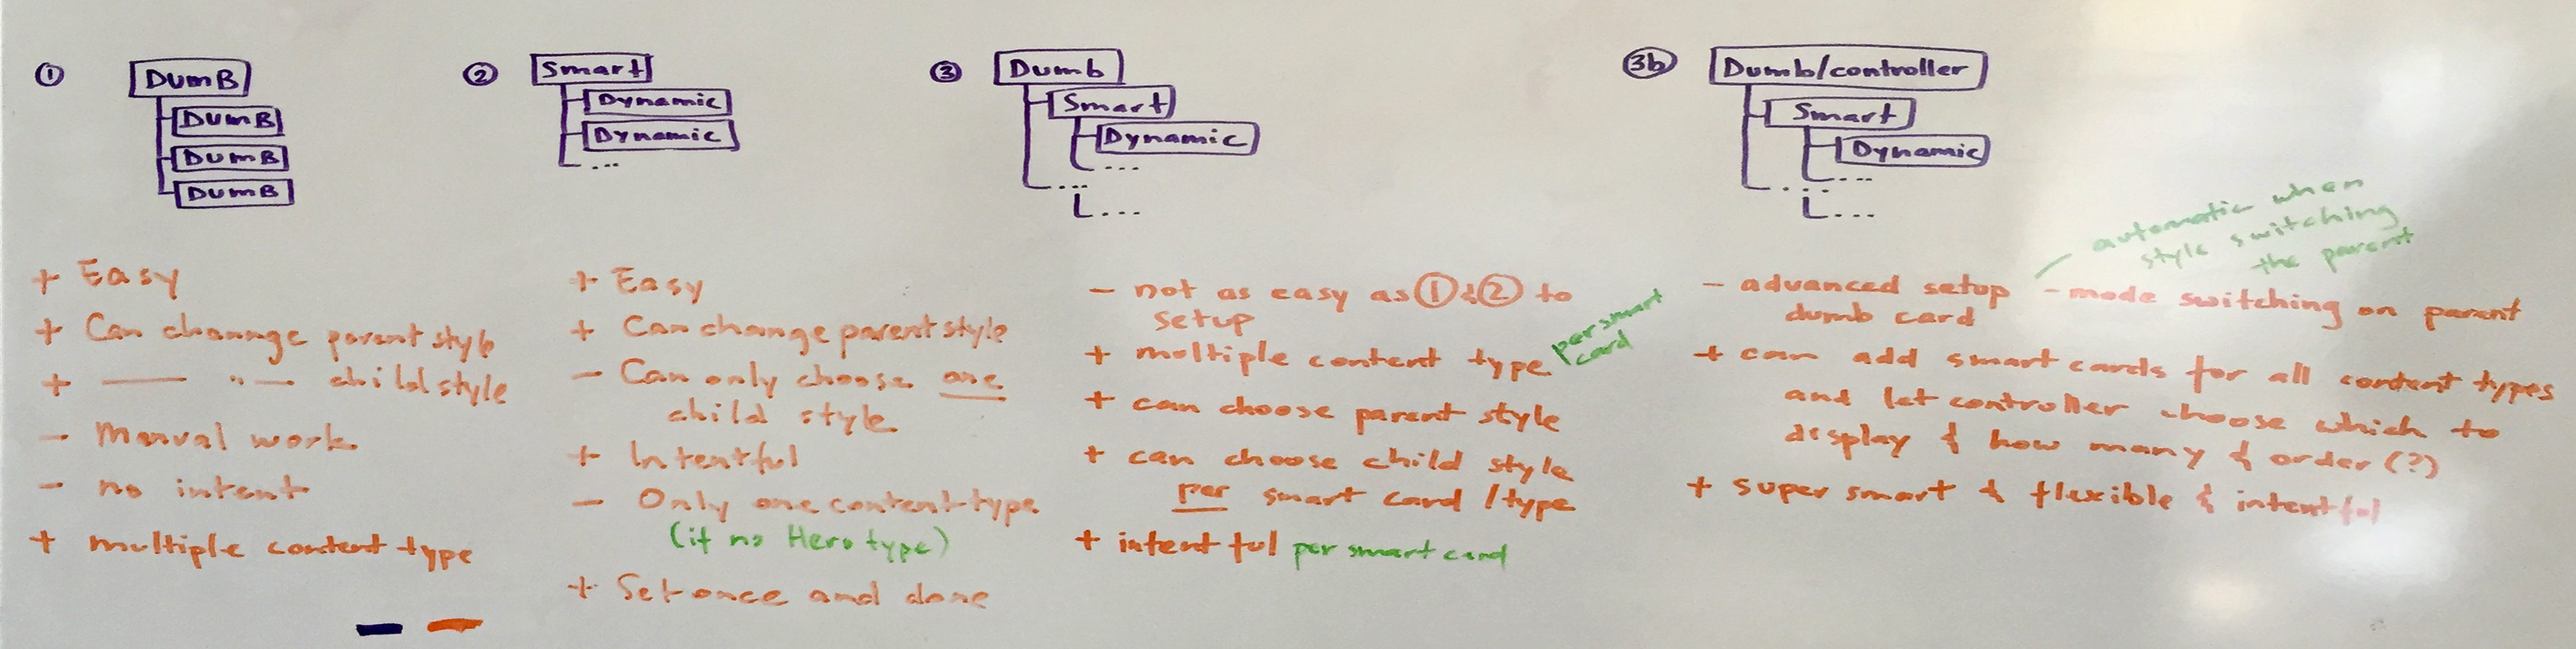 ①
DumB
DumB
DumB
DumB
+ Easy
+ Can channge parent style
+ —— "— child style
- Manual work
- no intent
+ multiple content type
②
Smart
Dynamic
Dynamic
...
+ Easy
+ Can change parent style
- Can only choose one
child style
+ Intentful
- Only one content type
(if no Hero type)
+ Set once and done
③
Dumb
Smart
Dynamic
...
...
...
- not as easy as ① & ② to
setup
+ multiple content type per smart
card
+ can choose parent style
+ can choose child style
per smart card / type
+ intentful per smart card
3b
Dumb/controller
Smart
Dynamic
...
...
...
automatic when
style switching
the parent
- advanced setup - mode switching on parent
dumb card
+ can add smart cards for all content types
and let controller choose which to
display & how many & order (?)
+ super smart & flexible & intentful